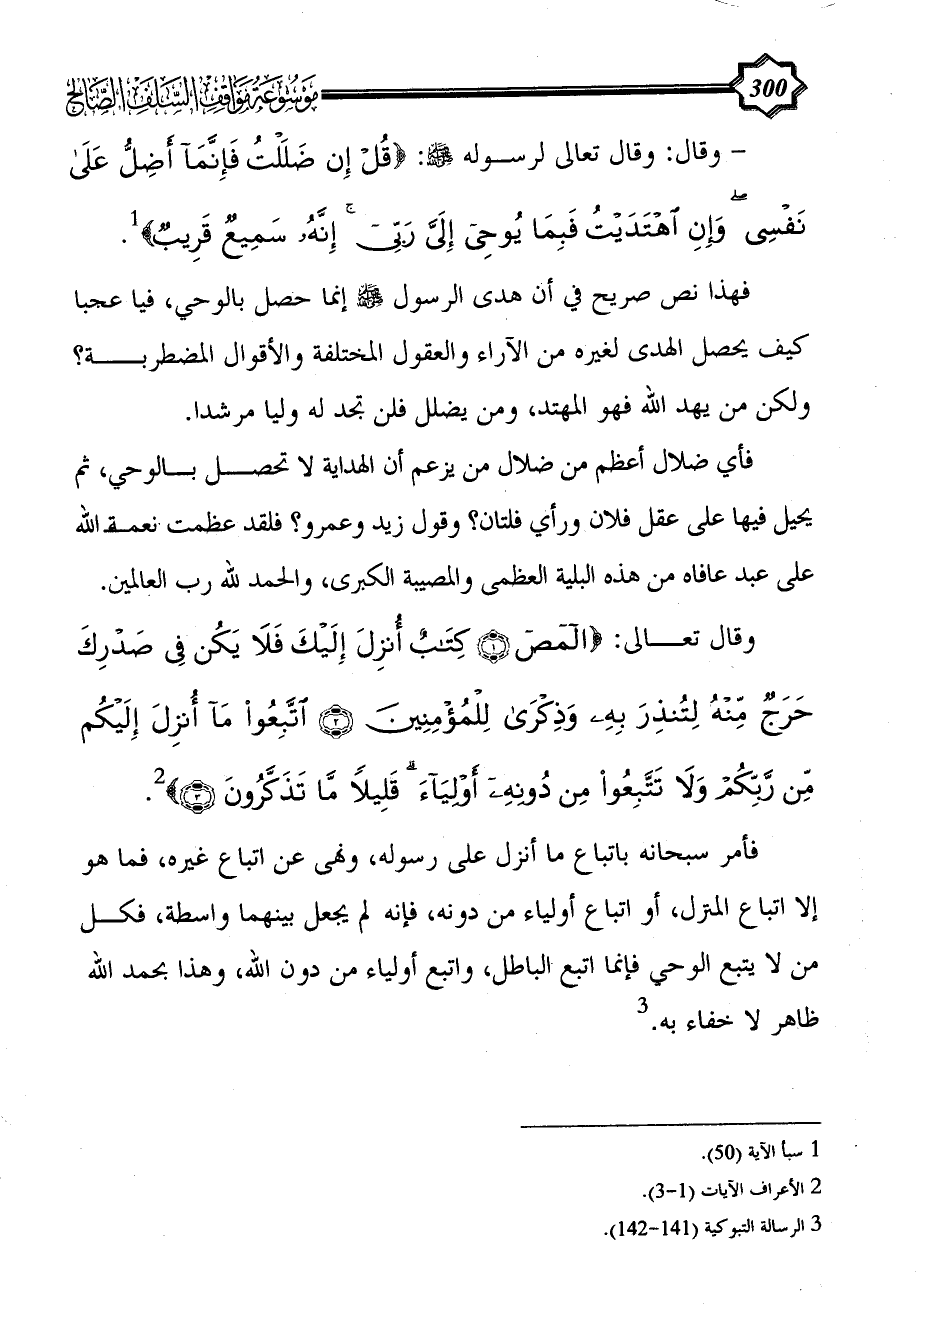 300 موسوعة مواقف السلف الصالح
– وقال: وقال تعالى لرسوله ﷺ: ﴿قُلْ إِن ضَلَلْتُ فَإِنَّمَآ أَضِلُّ عَلَىٰ
نَفْسِى ۖ وَإِنِ ٱهْتَدَيْتُ فَبِمَا يُوحِىٓ إِلَىَّ رَبِّىٓ ۚ إِنَّهُۥ سَمِيعٌ قَرِيبٌ﴾1.
فهذا نص صريح في أن هدى الرسول ﷺ إنما حصل بالوحي، فيا عجبا
كيف يحصل الهدى لغيره من الآراء والعقول المختلفة والأقوال المضطربــــة؟
ولكن من يهد الله فهو المهتد، ومن يضلل فلن تجد له وليا مرشدا.
فأي ضلال أعظم من ضلال من يزعم أن الهداية لا تحصــل بــالوحي، ثم
يحيل فيها على عقل فلان ورأي فلتان؟ وقول زيد وعمرو؟ فلقد عظمت نعمـة الله
على عبد عافاه من هذه البلية العظمى والمصيبة الكبرى، والحمد لله رب العالمين.
وقال تعــالى: ﴿الٓمٓصٓ ۝١ كِتَٰبٌ أُنزِلَ إِلَيْكَ فَلَا يَكُن فِى صَدْرِكَ
حَرَجٌ مِّنْهُ لِتُنذِرَ بِهِۦ وَذِكْرَىٰ لِلْمُؤْمِنِينَ ۝٢ ٱتَّبِعُوا۟ مَآ أُنزِلَ إِلَيْكُم
مِّن رَّبِّكُمْ وَلَا تَتَّبِعُوا۟ مِن دُونِهِۦٓ أَوْلِيَآءَ ۗ قَلِيلًا مَّا تَذَكَّرُونَ ۝٣﴾2.
فأمر سبحانه باتباع ما أنزل على رسوله، ونهى عن اتباع غيره، فما هو
إلا اتباع المنزل، أو اتباع أولياء من دونه، فإنه لم يجعل بينهما واسطة، فكــل
من لا يتبع الوحي فإنما اتبع الباطل، واتبع أولياء من دون الله، وهذا بحمد الله
ظاهر لا خفاء به.3
1 سبأ الآية (50).
2 الأعراف الآيات (1-3).
3 الرسالة التبوكية (141-142).